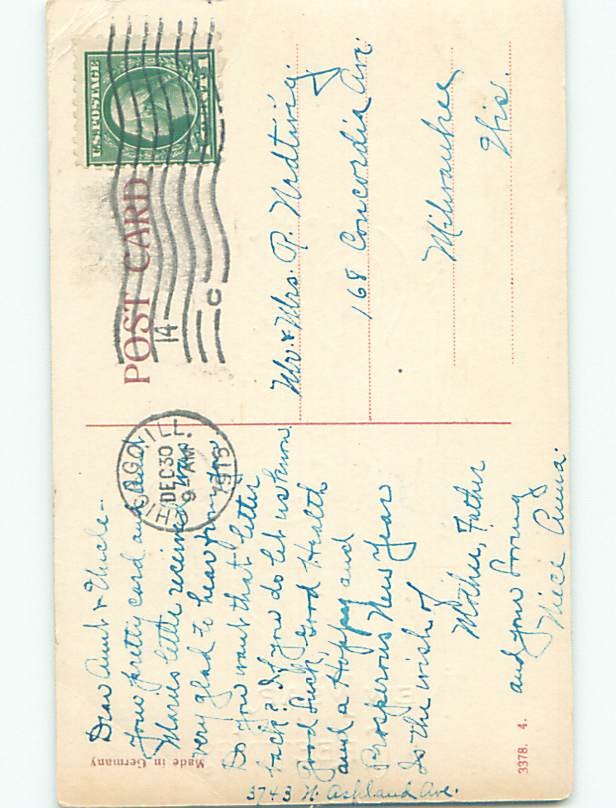 U.S. POSTAGE
POST CARD
CHICAGO, ILL.
DEC 30
9 AM
14
C
Mr. & Mrs. R. Nedtwig.
168 Concordia Ave.
Milwaukee
Wis.
Dear Aunt & Uncle-
Your pretty card and
Maries letter received was
very glad to hear from you.
Do you want that letter
back? If you do let us know.
Good Luck, Good Health
and a Happy and
Prosperous New Year
Is the wish of
Mother, Father
and your loving
Niece Anna.
3743 N. Ashland Ave.
Made in Germany
3378. 4.